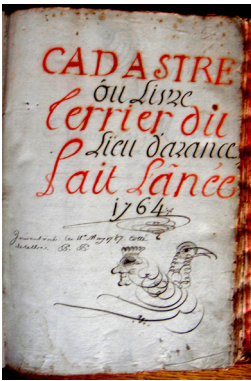 CADASTRE
ou Livre
terrier du
Lieu d'arance
fait l'anée
1764